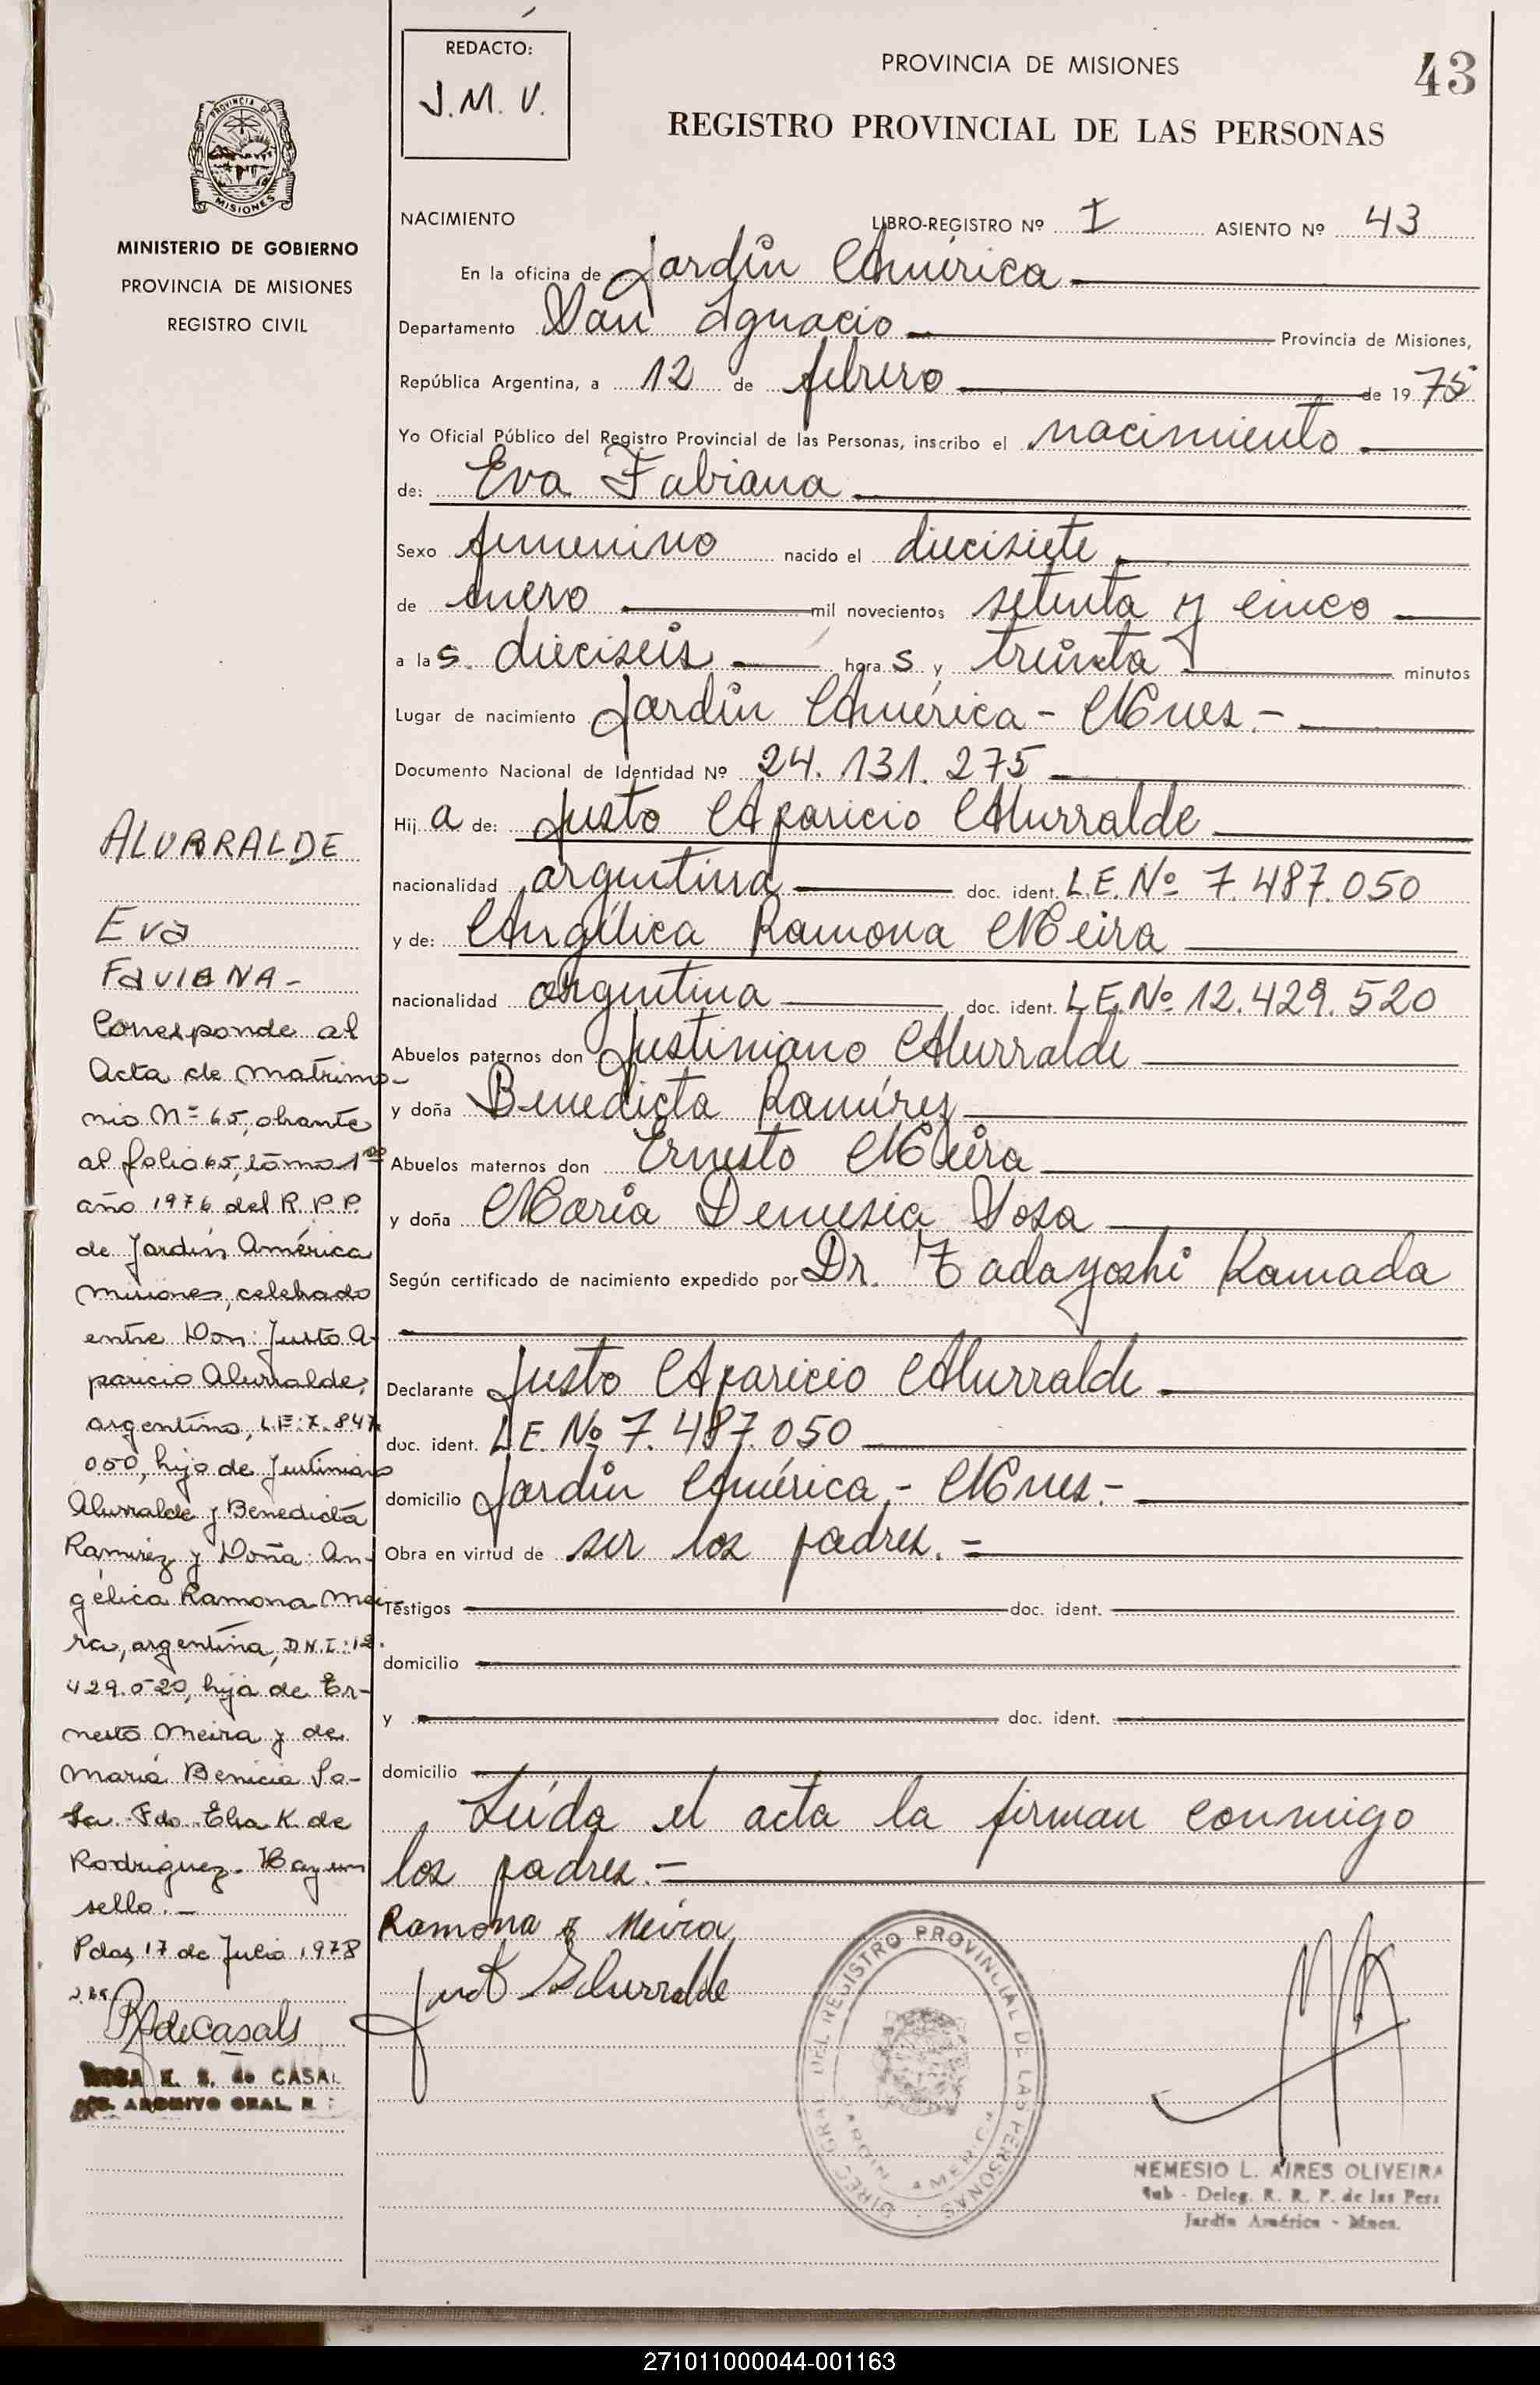 REDACTO:
J. M. V.
PROVINCIA DE MISIONES
43
REGISTRO PROVINCIAL DE LAS PERSONAS
PROVINCIA DE
MISIONES
MINISTERIO DE GOBIERNO
PROVINCIA DE MISIONES
REGISTRO CIVIL
NACIMIENTO LIBRO-REGISTRO Nº I ASIENTO Nº 43
En la oficina de Jardín América
Departamento San Ignacio Provincia de Misiones,
República Argentina, a 12 de febrero de 1975
Yo Oficial Público del Registro Provincial de las Personas, inscribo el nacimiento
de: Eva Fabiana
Sexo femenino nacido el diecisiete
de enero mil novecientos setenta y cinco
a las dieciseis horas y treinta minutos
Lugar de nacimiento Jardín América - Mnes.-
Documento Nacional de Identidad Nº 24.131.275
Hija de: Justo Aparicio Alurralde
nacionalidad argentina doc. ident. L.E. Nº 7.487.050
y de: Angélica Ramona Meira
nacionalidad argentina doc. ident. L.E. Nº 12.429.520
Abuelos paternos don Justiniano Alurralde
y doña Benedicta Ramírez
Abuelos maternos don Ernesto Meira
y doña María Demesia Sosa
Según certificado de nacimiento expedido por Dr. Tadayoshi Kamada
Declarante Justo Aparicio Alurralde
doc. ident. L.E. Nº 7.487.050
domicilio Jardín América,- Mnes.-
Obra en virtud de ser los padres.=
Testigos doc. ident.
domicilio
y doc. ident.
domicilio
Leída el acta la firman conmigo
los padres.=
Ramona Meira
Alurralde
ALURRALDE
Eva
FAVIANA-
Corresponde al
Acta de matrimo-
nio Nº 65, obrante
al folio 65, tomo 1º
año 1976 del R.P.P.
de Jardín América
Misiones, celebrado
entre Don: Justo A-
paricio Alurralde,
argentino, L.E: 7.847
050, hijo de Justiniano
Alurralde y Benedicta
Ramírez y Doña: An-
gélica Ramona Mei-
ra, argentina, D.N.I.: 12.
429.520, hija de Er-
nesto Meira y de
María Benicia So-
sa. Fdo. Elsa K. de
Rodriguez. Hay un
sello.-
Pdas, 17 de Julio 1978
de Casals
ROSA E. S. de CASAL
ARCHIVO GRAL. R
DIREC. GRAL. DEL REGISTRO PROVINCIAL DE LAS PERSONAS
JARDIN AMERICA
NEMESIO L. AIRES OLIVEIRA
Sub - Deleg. R. R. P. de las Pers
Jardín América - Mnes.
271011000044-001163